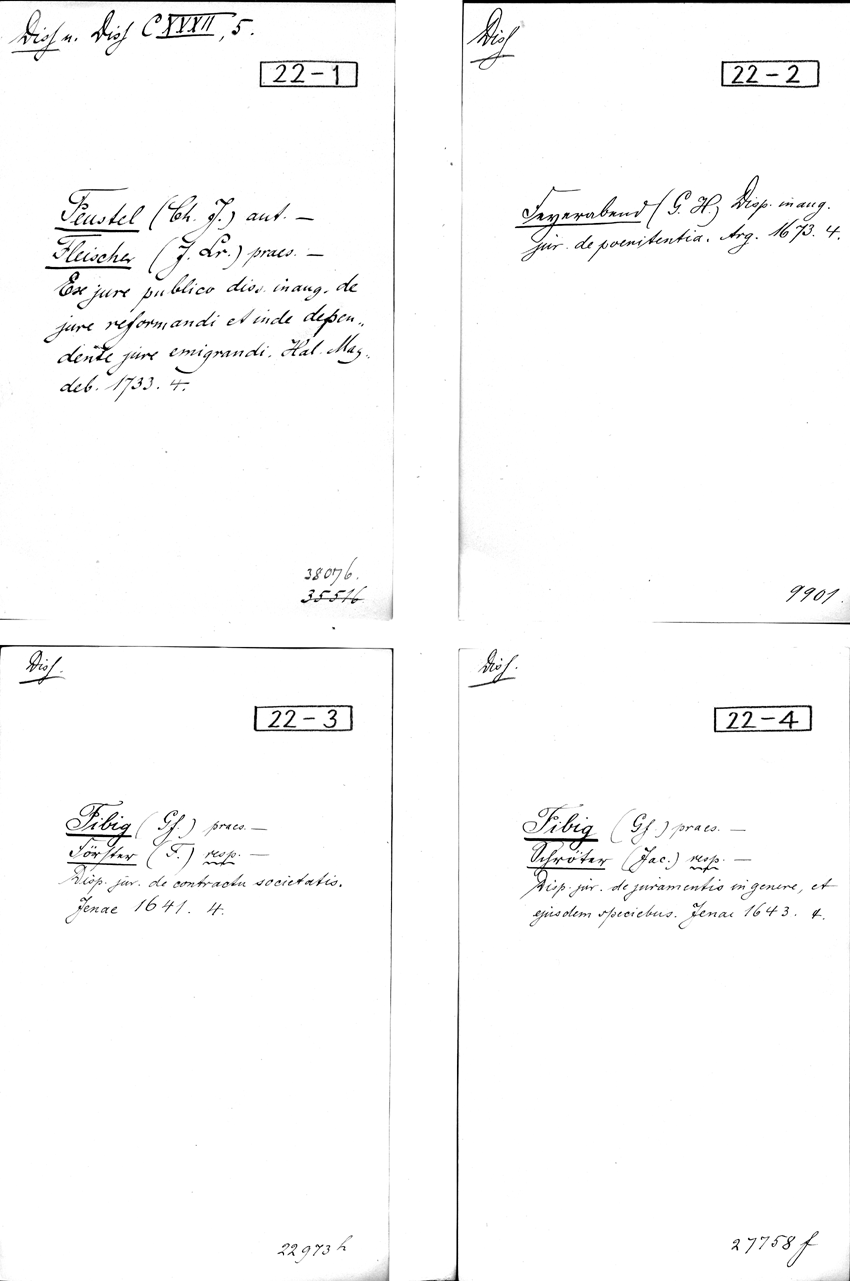 Diss u. Diss CXXXII, 5.
22-1
Feustel (Ch. J.) aut. —
Fleischer (J. Lr.) praes. —
Ex jure publico diss. inaug. de
jure reformandi et inde depen-
dente jure emigrandi. Hal. Mag-
deb. 1733. 4.
38076.
35516
Diss
22-2
Feyerabend (G. H.) Disp. inaug.
jur. de poenitentia. Arg. 1673. 4.
9901.
Diss.
22-3
Fibig (Gf.) praes. —
Förster (F.) resp. —
Disp. jur. de contractu societatis.
Jenae 1641. 4.
22973 h
Diss.
22-4
Fibig (Gf.) praes. —
Schröter (Jac.) resp. —
Disp. jur. de juramentis in genere, et
ejusdem speciebus. Jenae 1643. 4.
27758 f